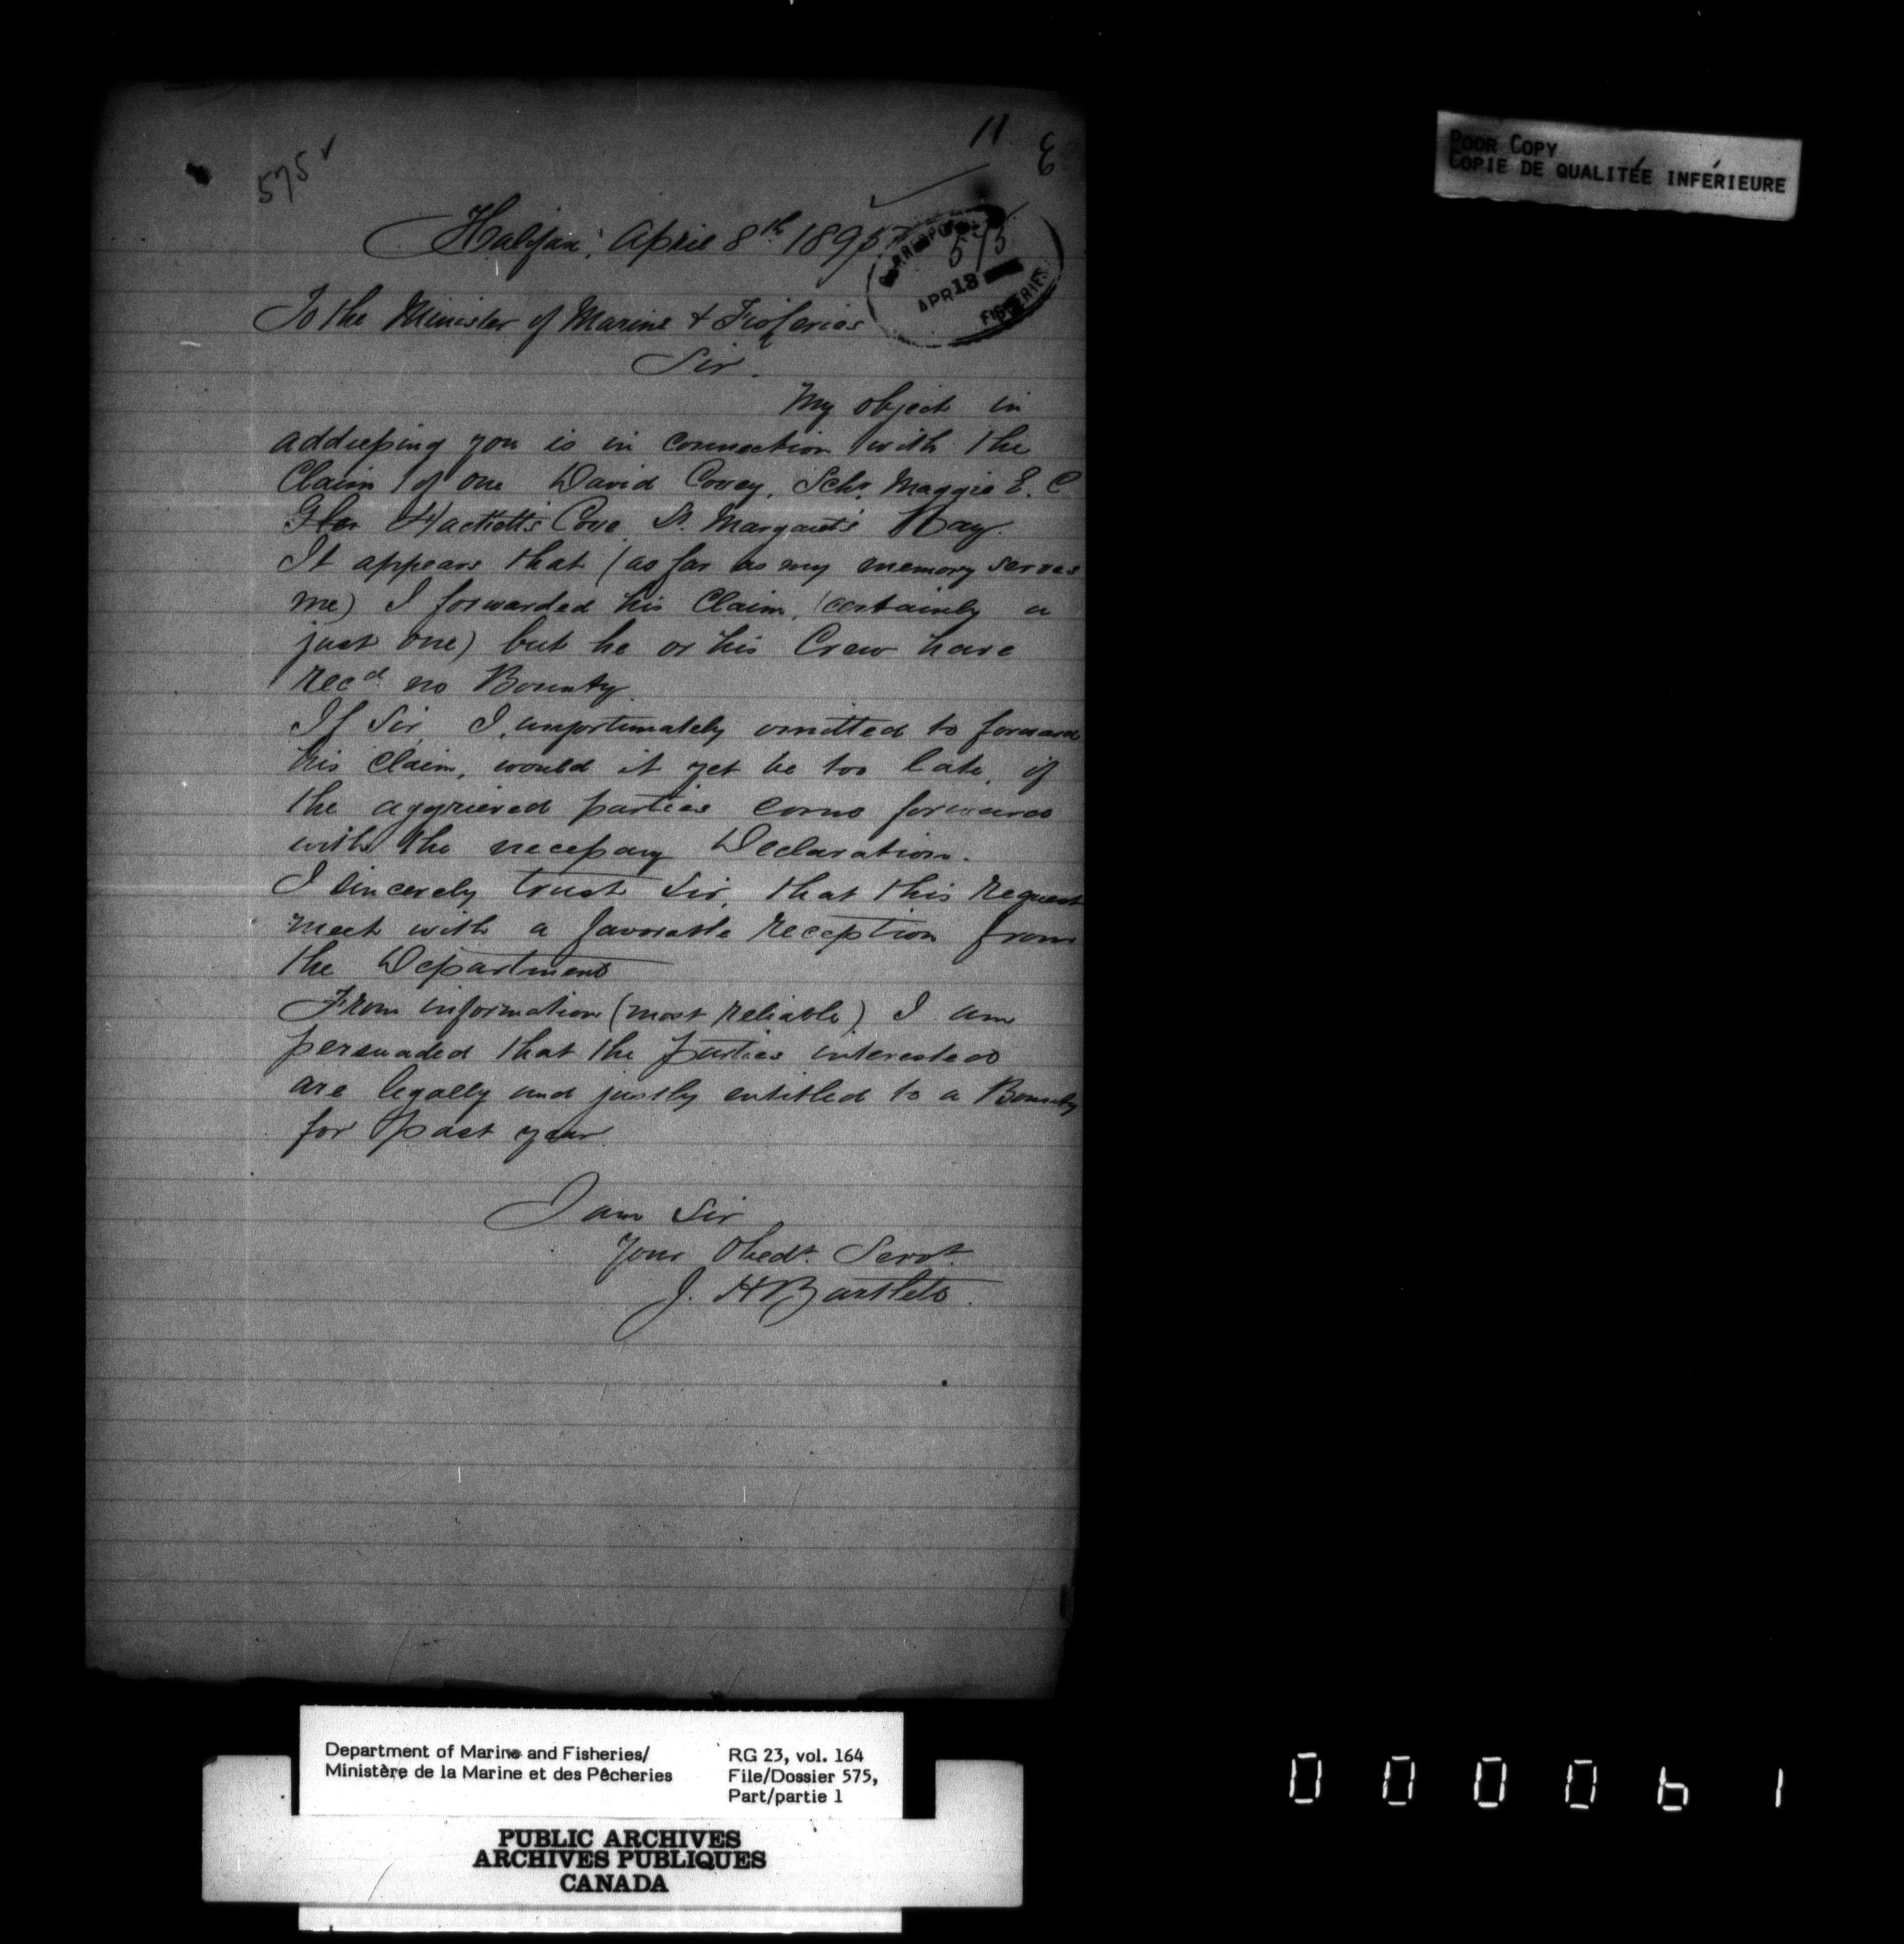 11
E
575 ✓
POOR COPY
COPIE DE QUALITÉE INFÉRIEURE
Halifax, April 8th 1895
575
APR 13
FISHERIES
To the Minister of Marine & Fisheries
Sir.
My object in
addressing you is in connection with the
Claim of one David Covey, Schr. Maggie E. C
Hacketts Cove St. Margarets Bay.
It appears that (as far as my memory serves
me) I forwarded his Claim, (certainly a
just one) but he or his Crew have
Recd. no Bounty.
If Sir, I unfortunately omitted to forward
his Claim, would it yet be too late, if
the aggrieved parties come forward
with the necessary Declaration.
I Sincerely trust Sir, that this Request
meet with a favorable reception from
the Department
From information (most reliable) I am
persuaded that the parties interested
are legally and justly entitled to a Bounty
for past year.
I am Sir
Your Obedt. Servt.
J. H Bartlett.
Department of Marine and Fisheries/
Ministère de la Marine et des Pêcheries
RG 23, vol. 164
File/Dossier 575,
Part/partie 1
PUBLIC ARCHIVES
ARCHIVES PUBLIQUES
CANADA
000061